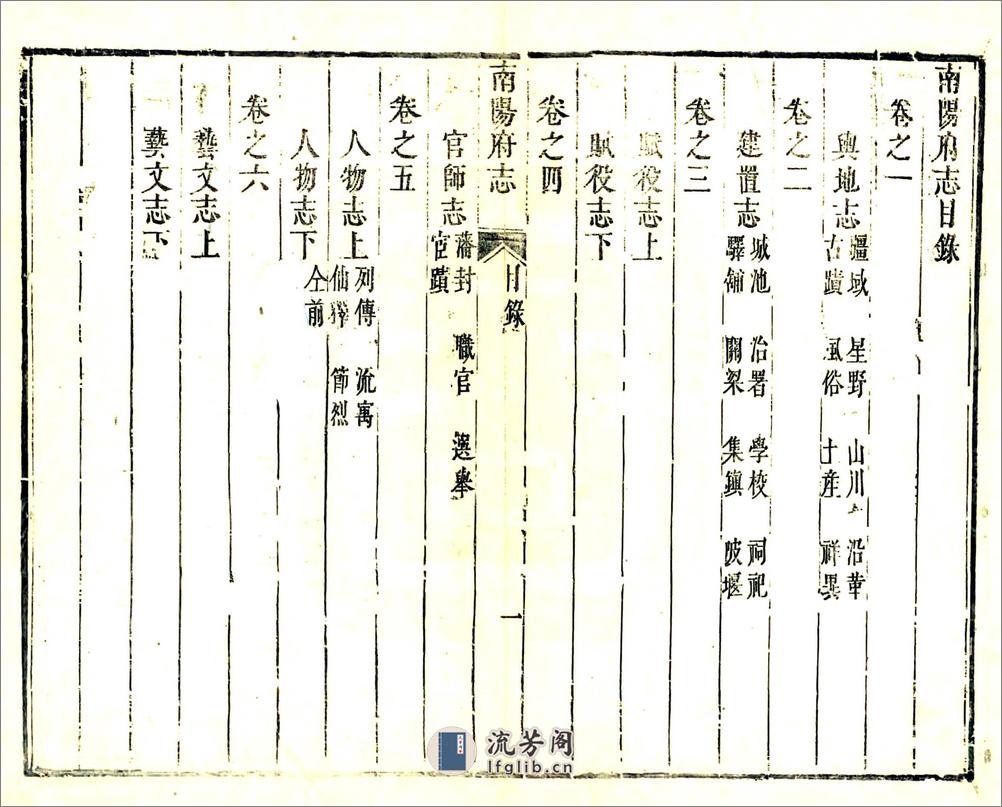 南陽府志目錄
卷之一
輿地志 疆域 星野 山川 沿革
古蹟 風俗 土產 祥異
卷之二
建置志 城池 治署 學校 祠祀
驛舖 關梁 集鎮 陂堰
卷之三
賦役志上
賦役志下
卷之四
南陽府志 目錄 一
官師志 藩封 職官 選舉
宦蹟
卷之五
人物志上 列傳 流寓
仙釋 節烈
人物志下 仝前
卷之六
藝文志上
藝文志下
流芳阁
lfglib.cn